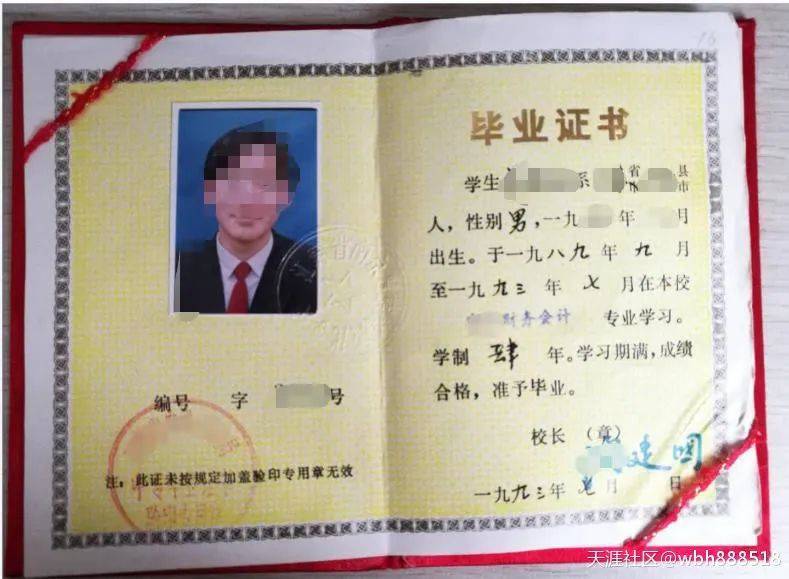 编号 字 号
注：此证未按规定加盖验印专用章无效
16
毕业证书
学生 系 省 县
市 市
人，性别男，一九 年 月
出生。于一九八九年九月
至一九九三年七月在本校
财务会计 专业学习。
学制 肆 年。学习期满，成绩
合格，准予毕业。
校长 （章）
建国
一九九三年七月 日
天涯社区@wbh888518